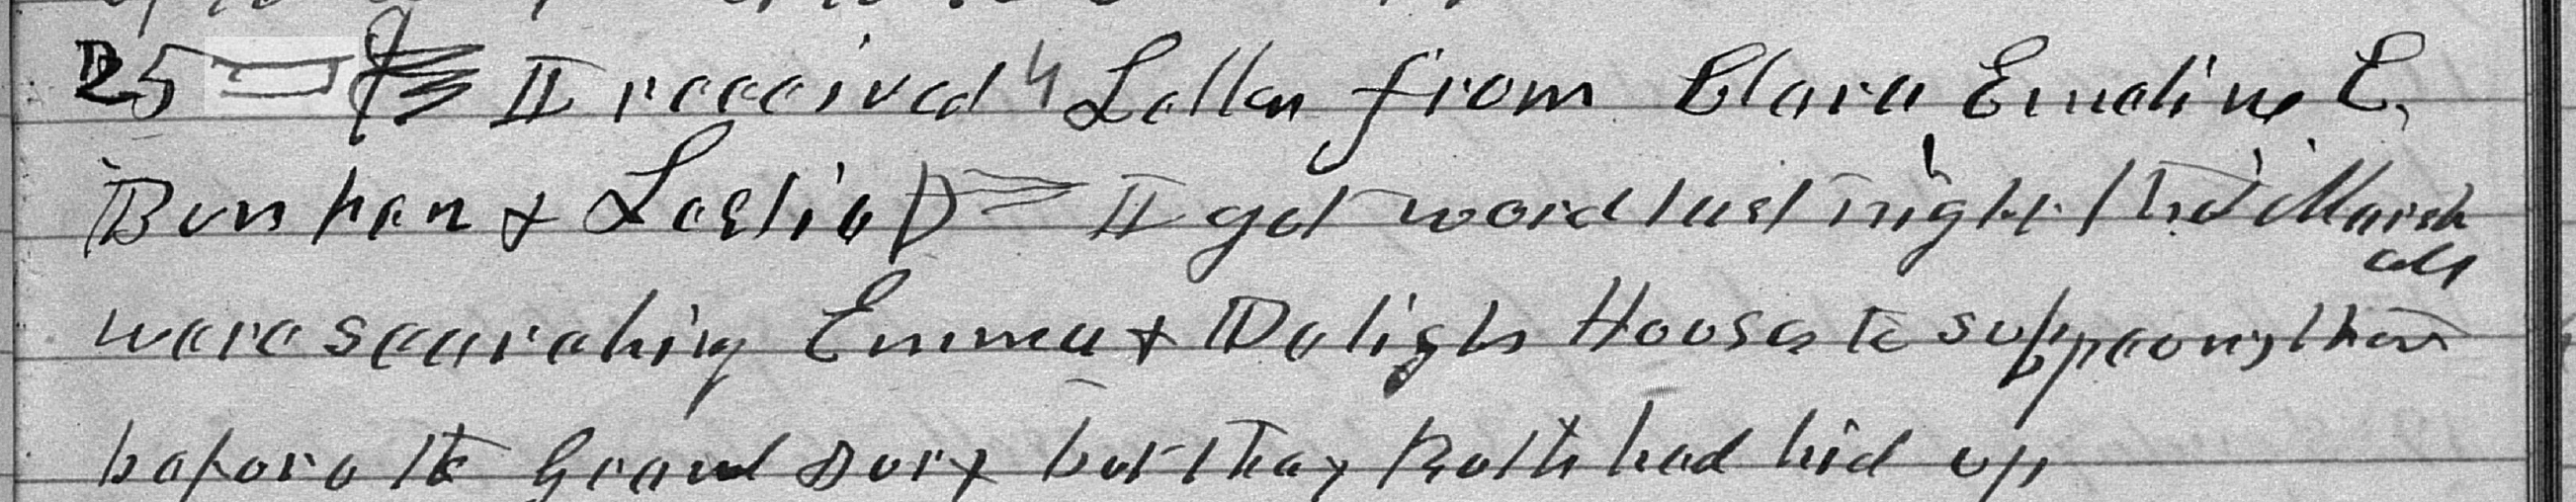 25 I received 4 Letters from Clara Emeline E.
Burnham & Leslie I got word last night the Marsh
als
were searching Emma & Deligh Houses to suppeony them
before the Grand Jury but they Both had hid up